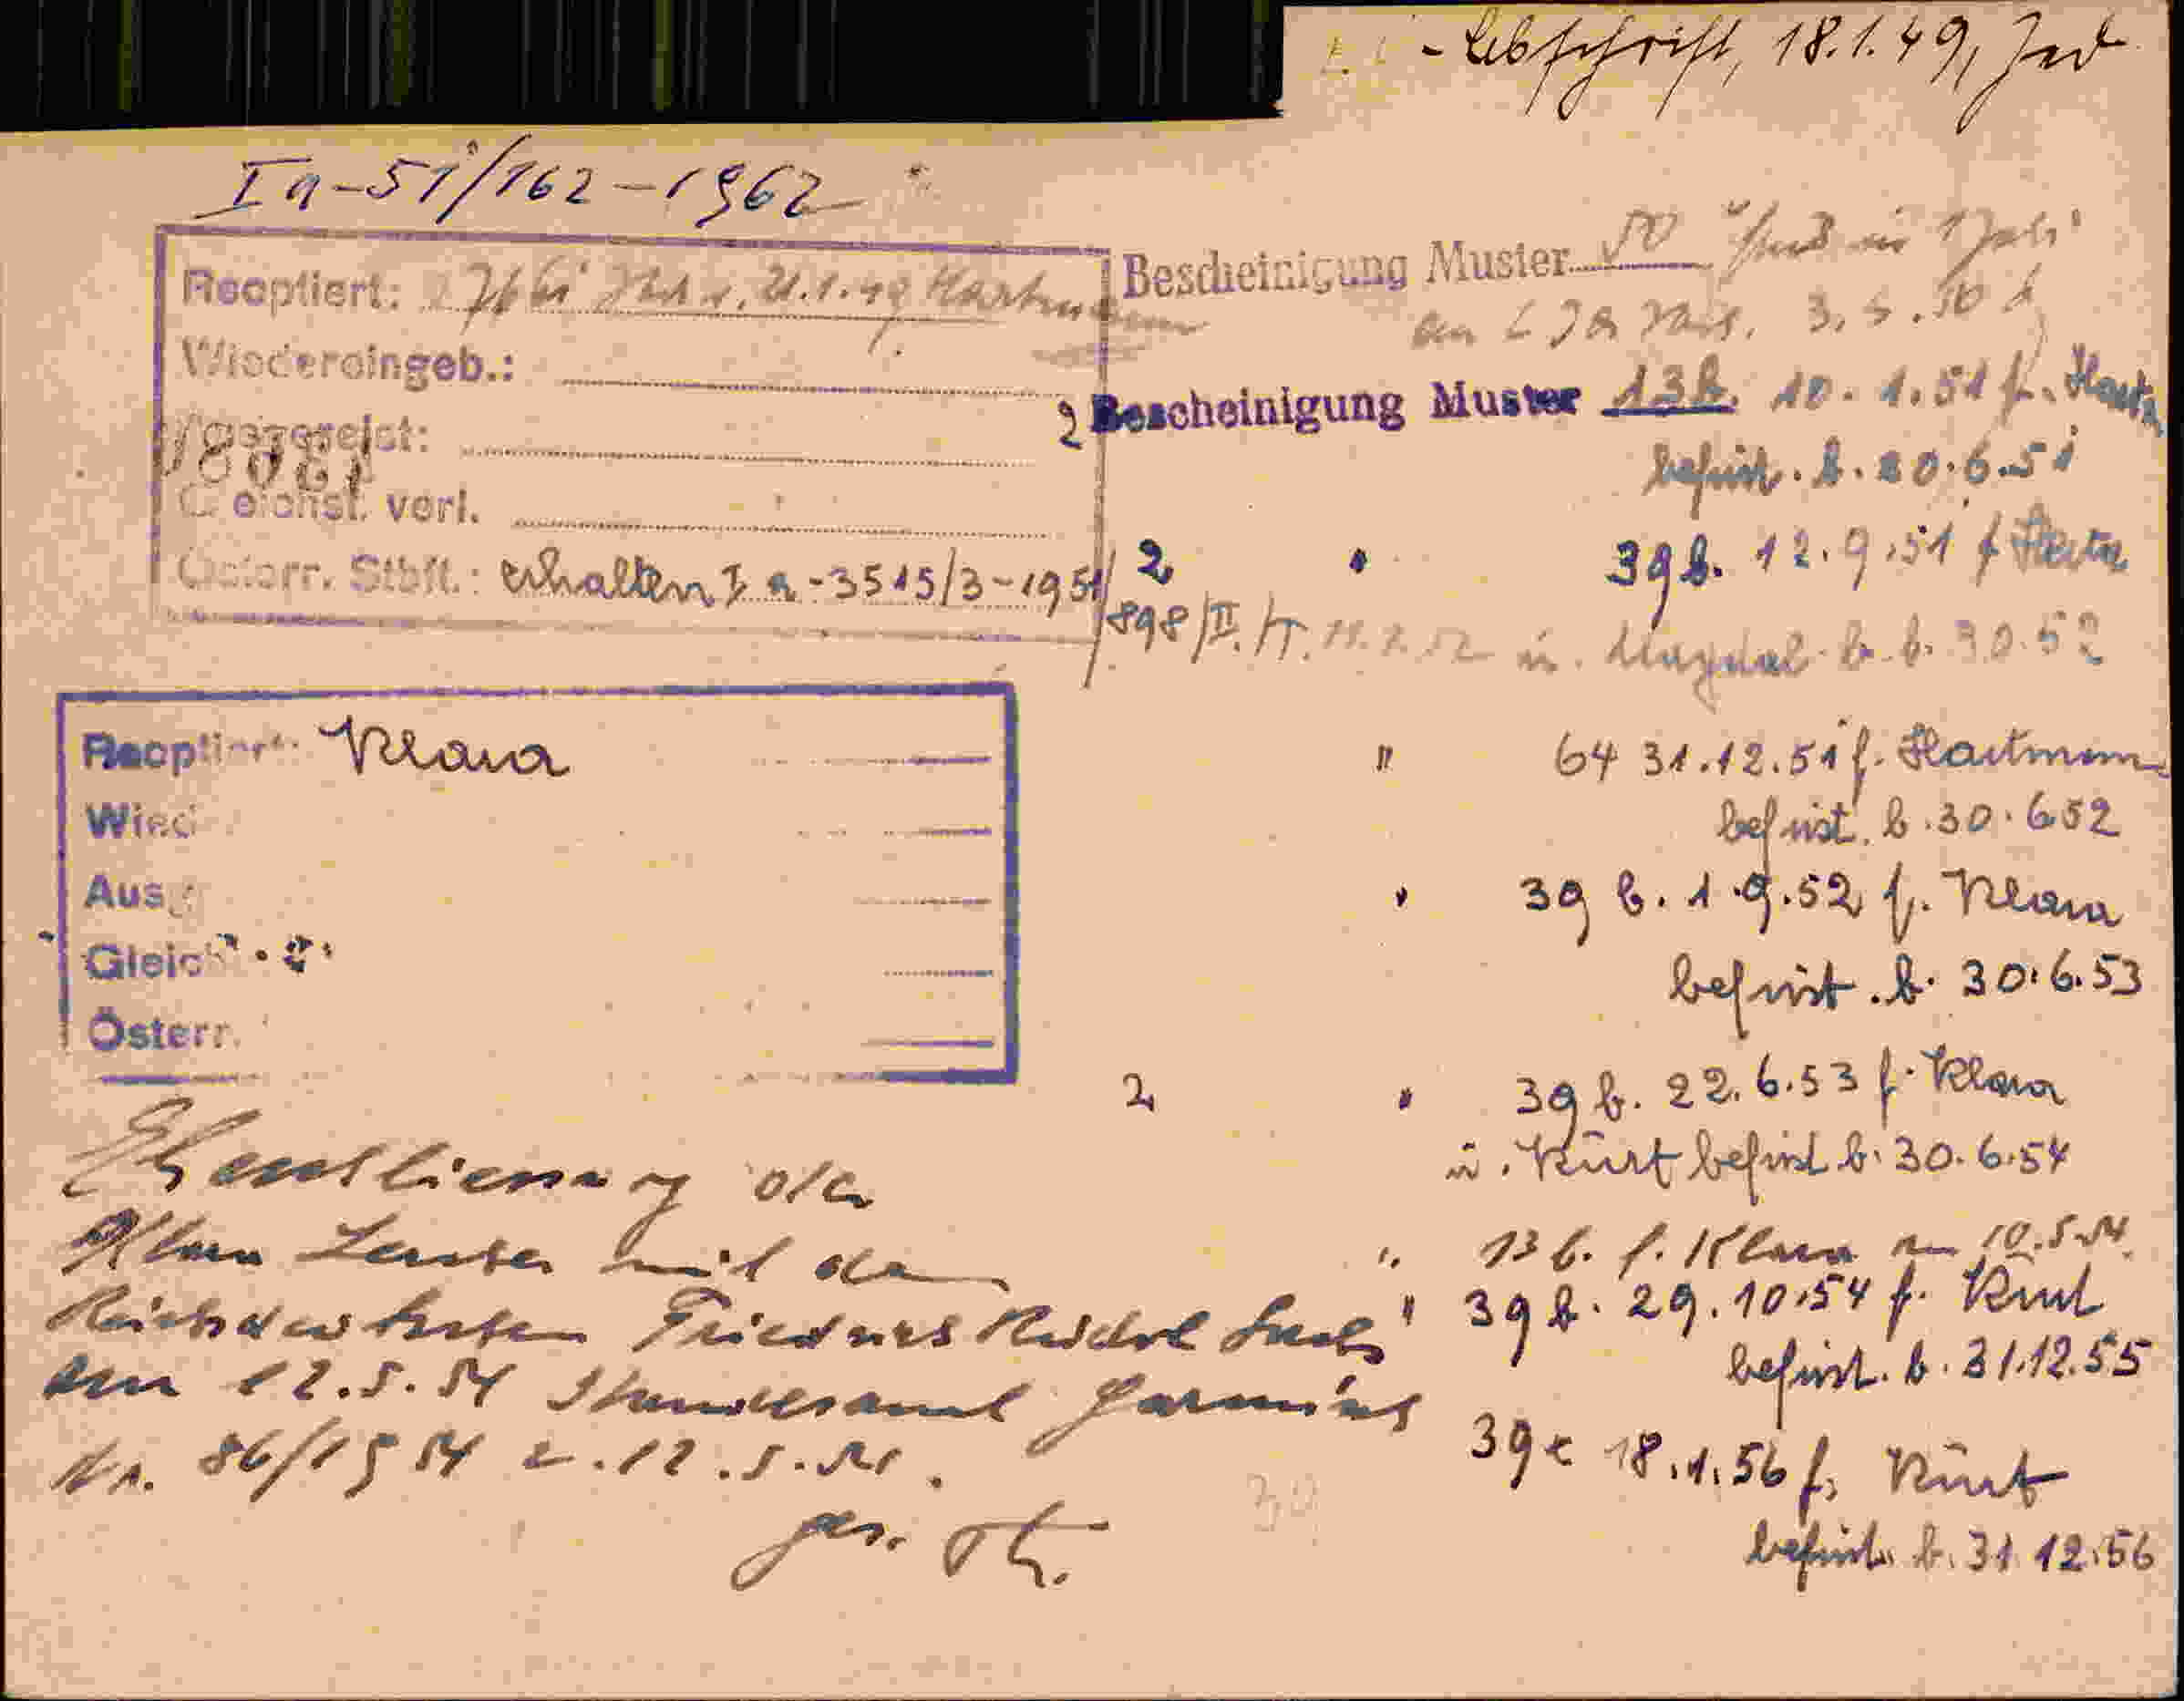 - Abschrift, 18.1.49, Jed
Ia-51/162-1962
Reoptiert: 21.1.49 Hartmann
Wiedereingeb.:
Ausgereist:
Gleichst. verl.
Österr. Stbft.: erhalten I a-3515/3-1951/
Bescheinigung Muster 50
3.5.50
2 Bescheinigung Muster 13b. 10.1.51 f. Hartm
befrist. b. 20.6.51
2 " 39b. 12.9.51 f
898/II./T. 11.2.52 u. Magdal. b. b. 30.52
" 64 31.12.51 f. Hartmann
befrist. b. 30.6.52
" 39 b. 1.9.52 f. Klara
befrist. b. 30.6.53
2 " 39 b. 22.6.53 f. Klara
u. Kurt befrist b. 30.6.54
" 13 b. f. Klara am 10.5.54.
" 39 b. 29.10.54 f. Kurt
befrist. b. 31.12.55
39c 18.1.56 f. Kurt
befrist. b. 31.12.56
Reoptiert: Klara
Wied
Aus
Gleich
Österr.
Eheschliessung der
Klara mit dem
Reichsdeutschen Friedrich
am 12.5.54 Standesamt Garmisch
Nr. 86/1954 v. 12.5.54.
gez.